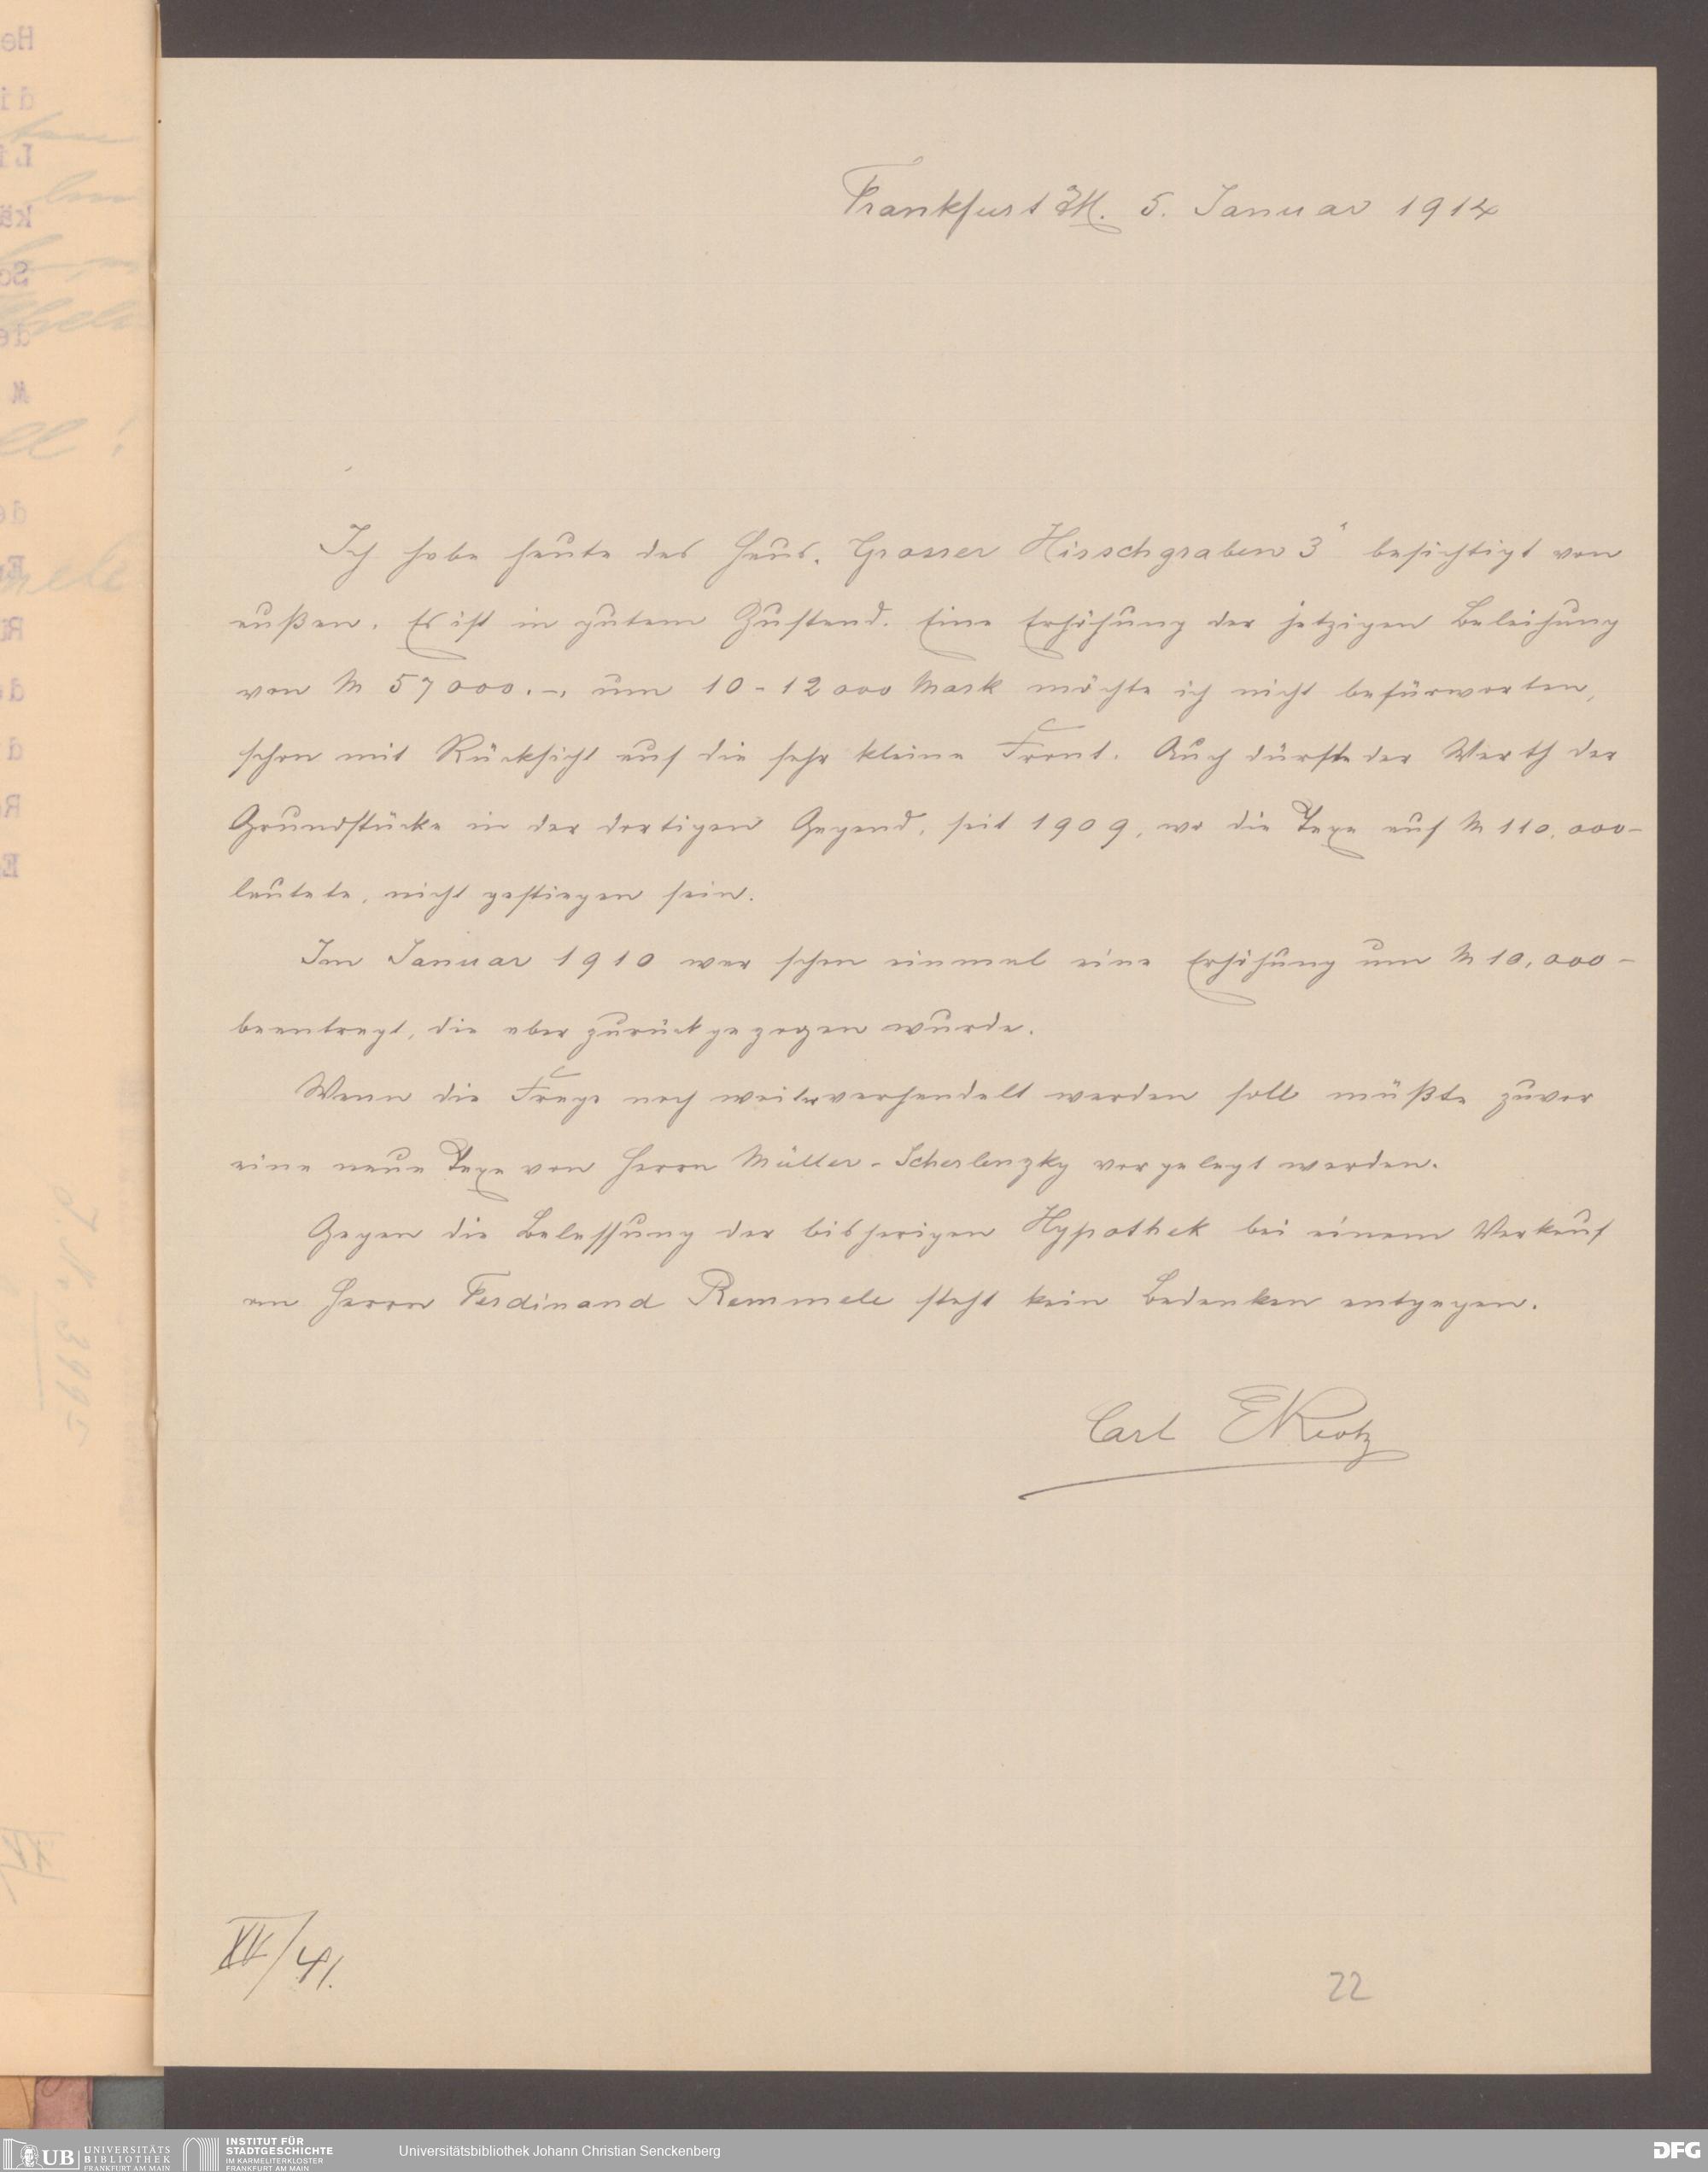 Frankfurt a/M. 5. Januar 1914
Ich habe heute das Haus, Grosser Hirschgraben 3" besichtigt von
außen. Es ist in gutem Zustand. Eine Erhöhung der jetzigen Beleihung
von M 57000.-, um 10-12000 Mark möchte ich nicht befürworten,
schon mit Rücksicht auf die sehr kleine Front. Auch dürfte der Werth der
Grundstücke in der dortigen Gegend, seit 1909, wo die Taxe auf M 110.000-
lautete, nicht gestiegen sein.
Im Januar 1910 war schon einmal eine Erhöhung um M 10.000-
beantragt, die aber zurückgezogen wurde.
Wenn die Frage noch weiter verhandelt werden soll müßte zuvor
eine neue Taxe von Herrn Müller-Scherlenzky vorgelegt werden.
Gegen die Belassung der bisherigen Hypothek bei einem Verkauf
an Herrn Ferdinand Remmele steht kein Bedenken entgegen.
Carl
XV/41.
22
UB UNIVERSITÄTS
BIBLIOTHEK
FRANKFURT AM MAIN
INSTITUT FÜR
STADTGESCHICHTE
IM KARMELITERKLOSTER
FRANKFURT AM MAIN
Universitätsbibliothek Johann Christian Senckenberg
DFG